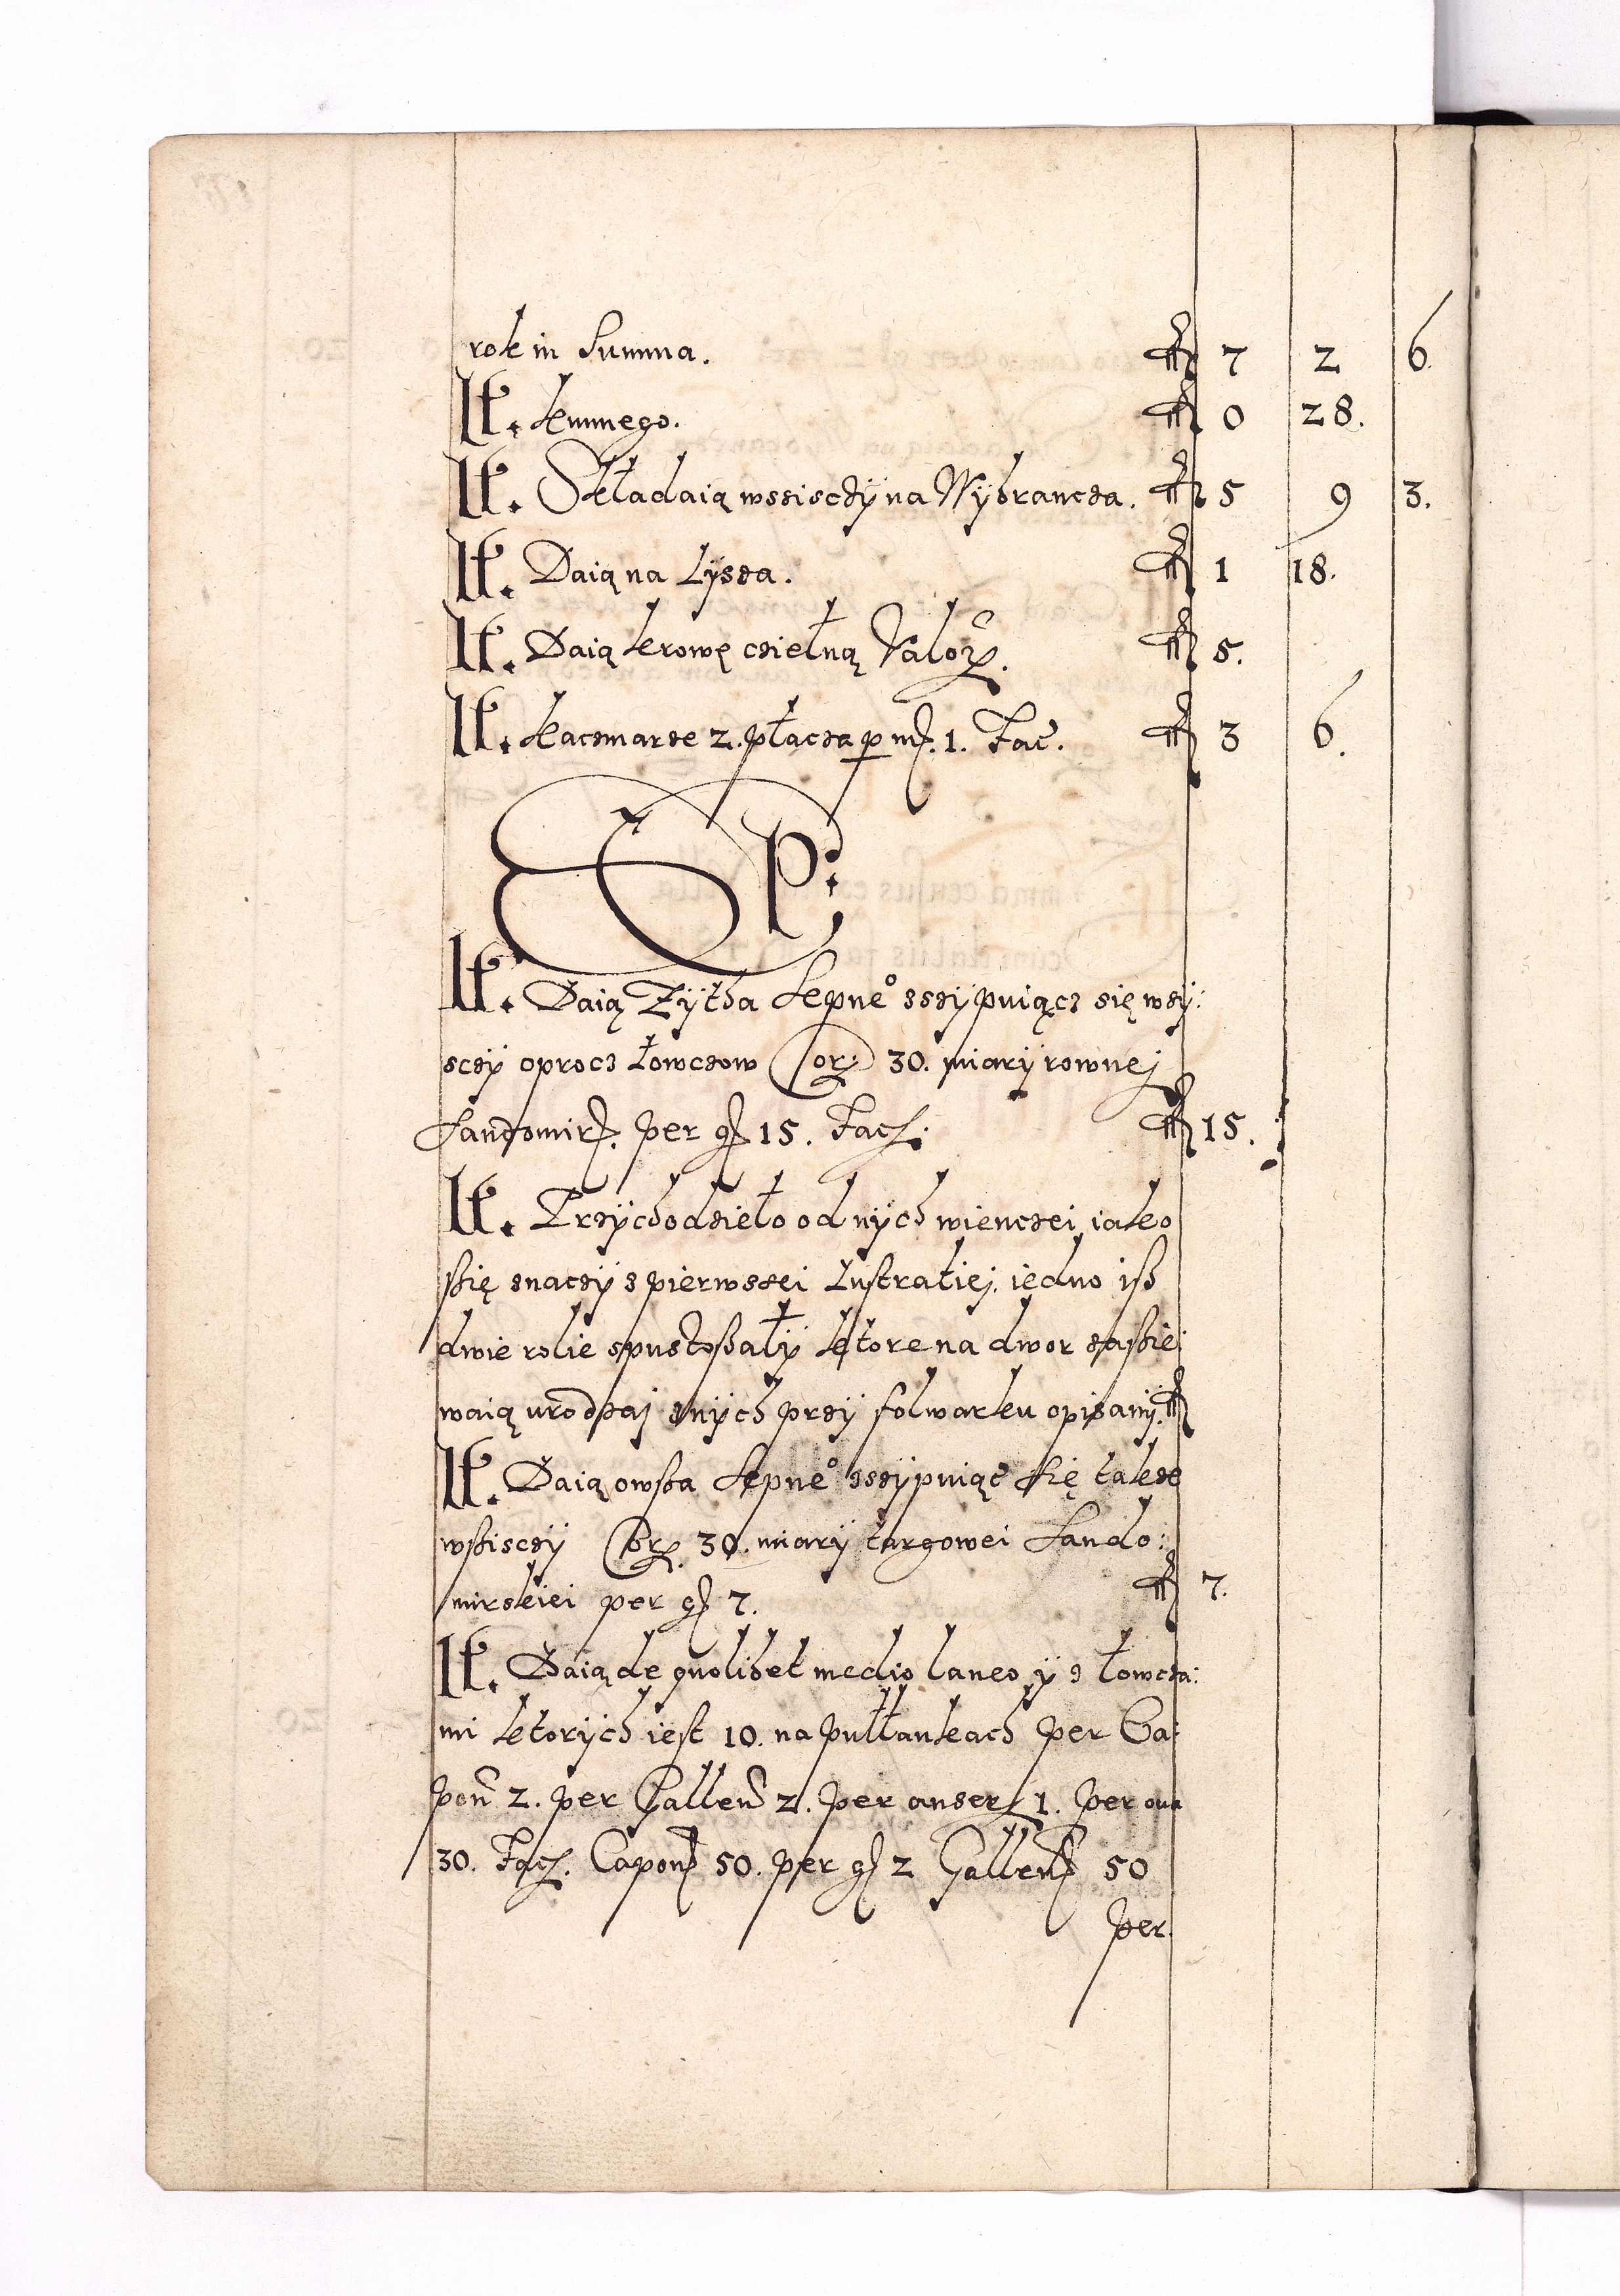 rok in Summa. fl 7 2 6.
It. kunnego. fl 0 28.
It. Składaią wssisczÿ na Wÿbrancza. fl 5 9 3.
It. Daią na Lÿsza. fl 1 18.
It. Daią krowę czielną Valo͠r. fl 5.
It. kaczmarze 2. płacza p mr. 1. Fac̃. fl 3 6.
SEP:
It. Daią Zÿtha Sepne° zsÿpuiącz się wsÿ:
sczÿ oprocz łowczow Cor: 30. miarÿ rownej
Sandomir. per gr 15. Fac. fl 15.
It. Przÿchodzieło od nÿch wienczei, iako
ssię znaczÿ z pierwszei Lustratiej. iedno iss
dwie rolie spustossałÿ ktore na dwor zassie:
waią urodzaj z nÿch przÿ folwarku opisanÿ. fl
It. Daią owssa Sepne° zsÿpuiąc̃ się takze
wssisczÿ Cor. 30. miarÿ targowei Sando:
mirskiei per gr 7. fl 7.
It. Daią de quolibet medio laneo ÿ z łowcza:
mi ktorÿch iest 10. na pułłankach per Ca:
pon̄ 2. per Gallen̄ 2. per anser 1. per oua
30. Fac. Capon 50. per gr 2 Gallen 50
per.